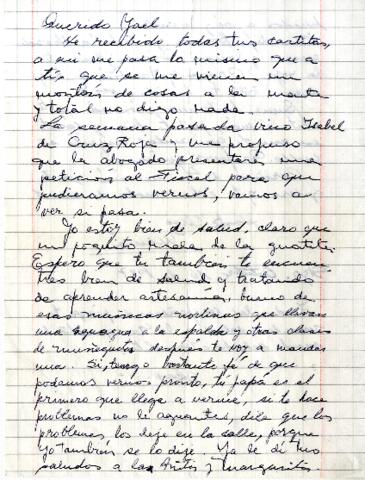 Querido Yael
He recibido todas tus cartitas,
a mi me pasa lo mismo que a
ti, que se me vienen un
montón de cosas a la mente
y total no digo nada.
La semana pasada vino Isabel
de Cruz Roja y me propuso
que la abogado presentara una
petición al Fiscal para que
pudieramos vernos, vamos a
ver si pasa.
Yo estoy bien de salud, claro que
un poquito mala de la guatita.
Espero que tu también te encuen
tres bien de salud y tratando
de aprender artesanía, bueno de
esas muñecas nortinas que llevan
una guagua a la espalda y otras clases
de muñequitas después te voy a mandar
una. Si, tengo bastante fé de que
podamos vernos pronto, tu papá es el
primero que llega a verme, si te hace
problemas no le aguantes, dile que los
problemas los deje en la calle, porque
yo también se lo dije. Ya le di tus
saludos a las y Margarita